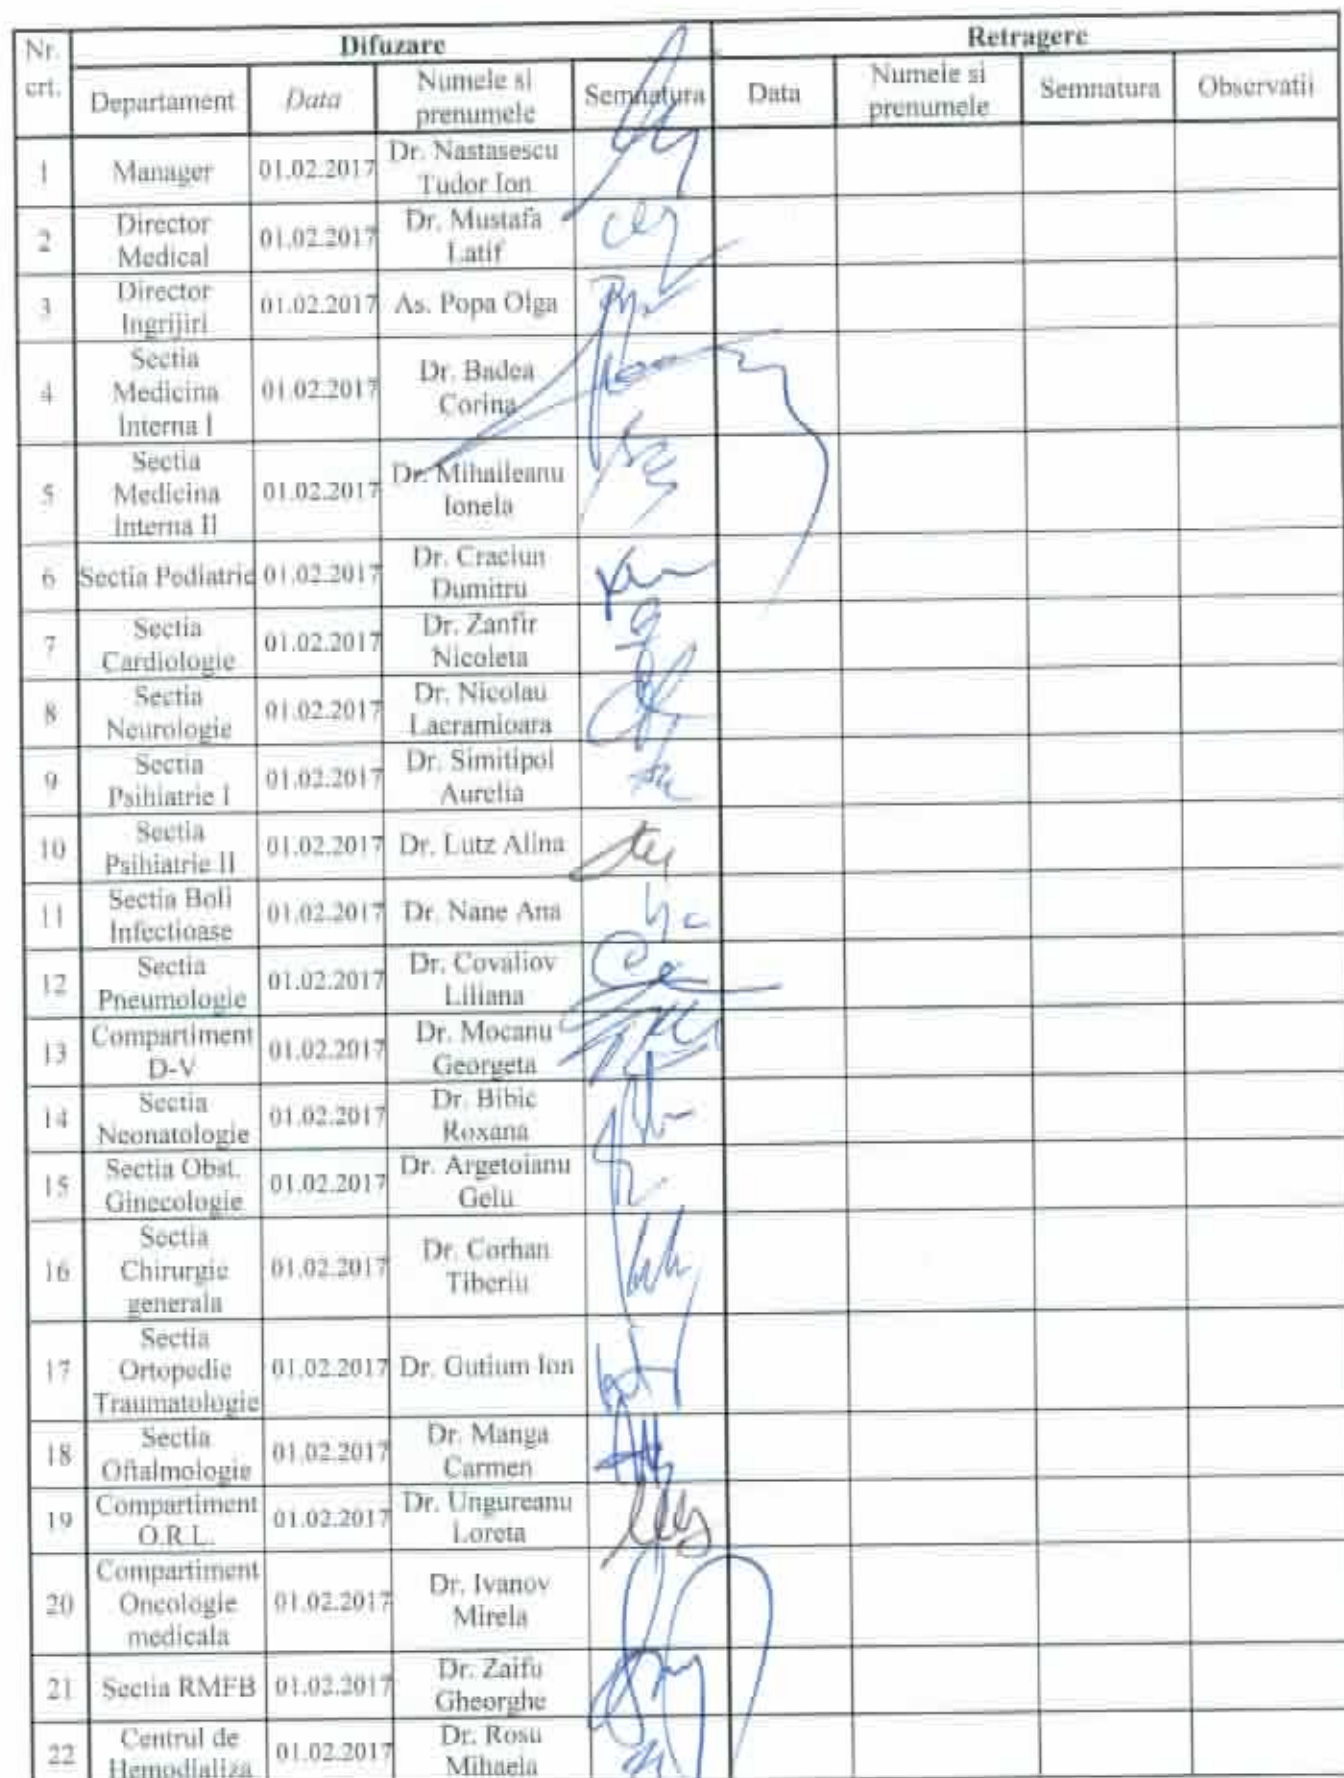 Nr. crt. Difuzare Retragere
Departament Data Numele si prenumele Semnatura Data Numele si prenumele Semnatura Observatii
1 Manager 01.02.2017 Dr. Nastasescu Tudor Ion
2 Director Medical 01.02.2017 Dr. Mustafa Latif
3 Director Ingrijiri 01.02.2017 As. Popa Olga
4 Sectia Medicina Interna I 01.02.2017 Dr. Badea Corina
5 Sectia Medicina Interna II 01.02.2017 Dr. Mihaileanu Ionela
6 Sectia Pediatrie 01.02.2017 Dr. Craciun Dumitru
7 Sectia Cardiologie 01.02.2017 Dr. Zanfir Nicoleta
8 Sectia Neurologie 01.02.2017 Dr. Nicolau Lacramioara
9 Sectia Psihiatrie I 01.02.2017 Dr. Simitipol Aurelia
10 Sectia Psihiatrie II 01.02.2017 Dr. Lutz Alina
11 Sectia Boli Infectioase 01.02.2017 Dr. Nane Ana
12 Sectia Pneumologie 01.02.2017 Dr. Covaliov Liliana
13 Compartiment D-V 01.02.2017 Dr. Mocanu Georgeta
14 Sectia Neonatologie 01.02.2017 Dr. Bibic Roxana
15 Sectia Obst. Ginecologie 01.02.2017 Dr. Argetoianu Gelu
16 Sectia Chirurgie generala 01.02.2017 Dr. Corhan Tiberiu
17 Sectia Ortopedie Traumatologie 01.02.2017 Dr. Gutium Ion
18 Sectia Oftalmologie 01.02.2017 Dr. Manga Carmen
19 Compartiment O.R.L. 01.02.2017 Dr. Ungureanu Loreta
20 Compartiment Oncologie medicala 01.02.2017 Dr. Ivanov Mirela
21 Sectia RMFB 01.02.2017 Dr. Zaifu Gheorghe
22 Centrul de Hemodializa 01.02.2017 Dr. Rosu Mihaela